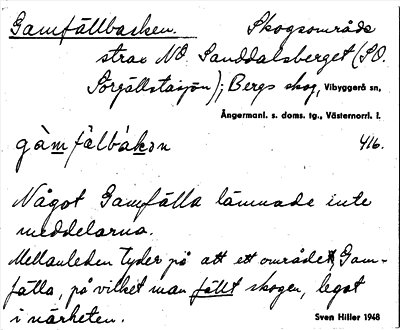 Gamfällbacken. Skogsområde
strax NO Sanddalsberget (SO.
Sörgällstasjön); Bergs skog, Vibyggerå sn,
Ångermanl. s. doms. tg., Västernorrl. l.
gàm fälbákən 416.
Något Gamfälla lämnade inte
meddelarna.
Mellanleden tyder på att ett område, Gam-
fälla, på vilket man fällt skogen, legat
i närheten. Sven Hiller 1948